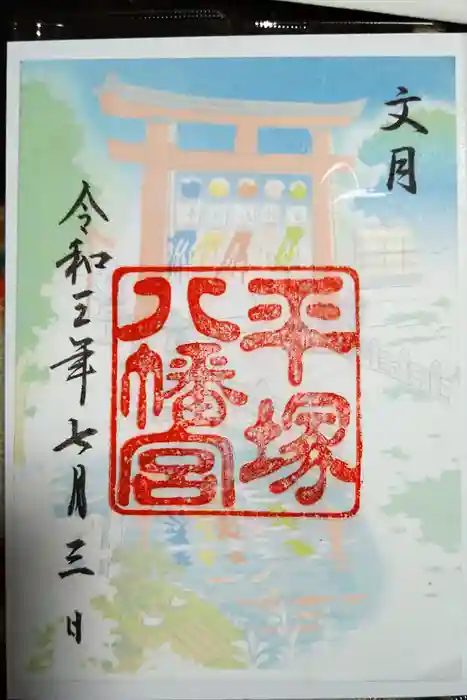 文月
平塚
八幡宮
令和三年七月三日